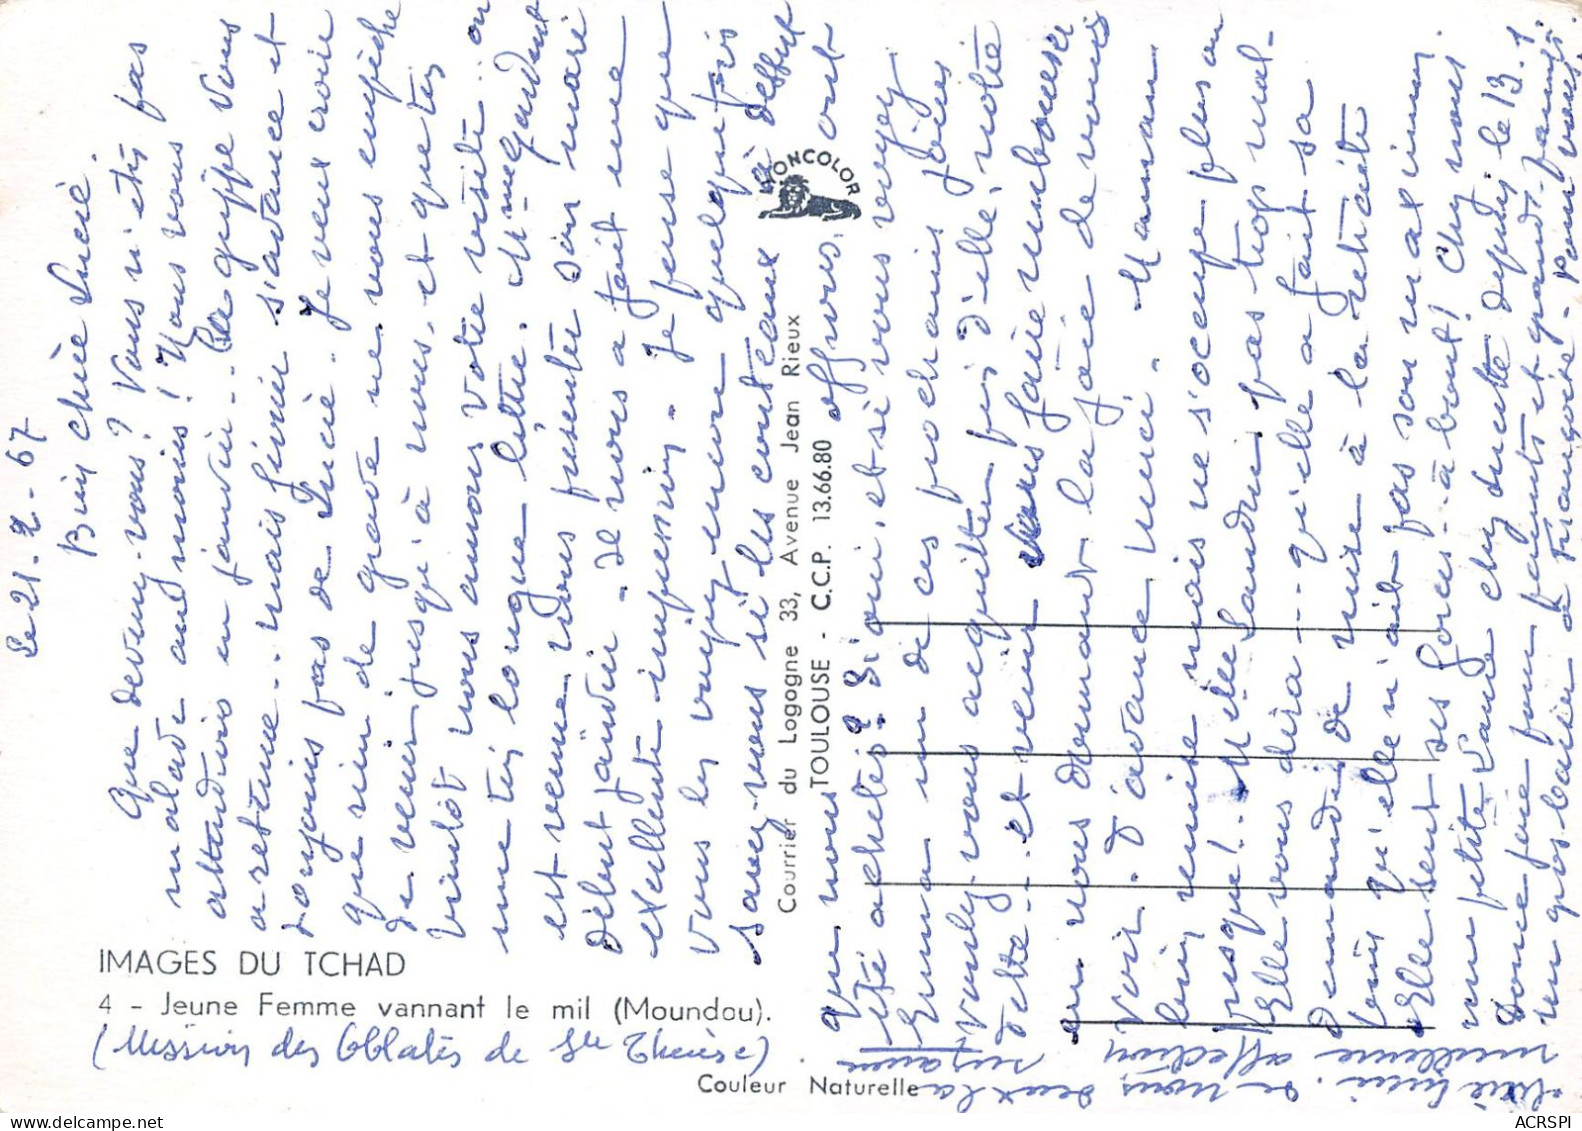 IMAGES DU TCHAD
4 - Jeune Femme vannant le mil (Moundou).
(Mission des Oblates de Ste Thérèse)
Couleur Naturelle
LIONCOLOR
Courrier du Logogne 33, Avenue Jean Rieux
TOULOUSE - C.C.P. 13.66.80
Le 21.2.67
Bien chère Lucie.
Que devenez-vous? Vous n'êtes pas
malade au moins! Nous vous
attendions en janvier.. La grippe vous
a retenue.. mais février s'avance et
toujours pas de Lucie. Je veux croire
que rien de grave ne vous empêche
de venir jusqu'à nous, et que très
vite nous aurons votre visite.. ou
une très longue lettre. Mme
est venue nous présenter son mari
début janvier. Il nous a fait une
excellente impression. Je pense que
vous les voyez encore quelquefois
savez-vous si les couteaux à dessert
que nous offrons, ont
été achetés? Si oui, et si vous voyez
Emma un de ces prochains jours
voulez-vous acquitter près d'elle, notre
dette.. et venir vous faire rembourser
en nous donnant la joie de vous
voir. D'avance merci. Maman
bien remise mais ne s'occupe plus ou
presque!. Elle pas trop mal-
Elle vous dira... qu'elle a fait sa
demande de mise à la retraite
bien qu'elle n'ait pas son maximum.
Elle sent ses forces.. à bout! Chez nous
une petite chez depuis le 13.1
Bonne fête pour parents et grands-parents.
un gros baiser à Françoise. Pour vous,
chère Lucie. De nous deux la
meilleure affection